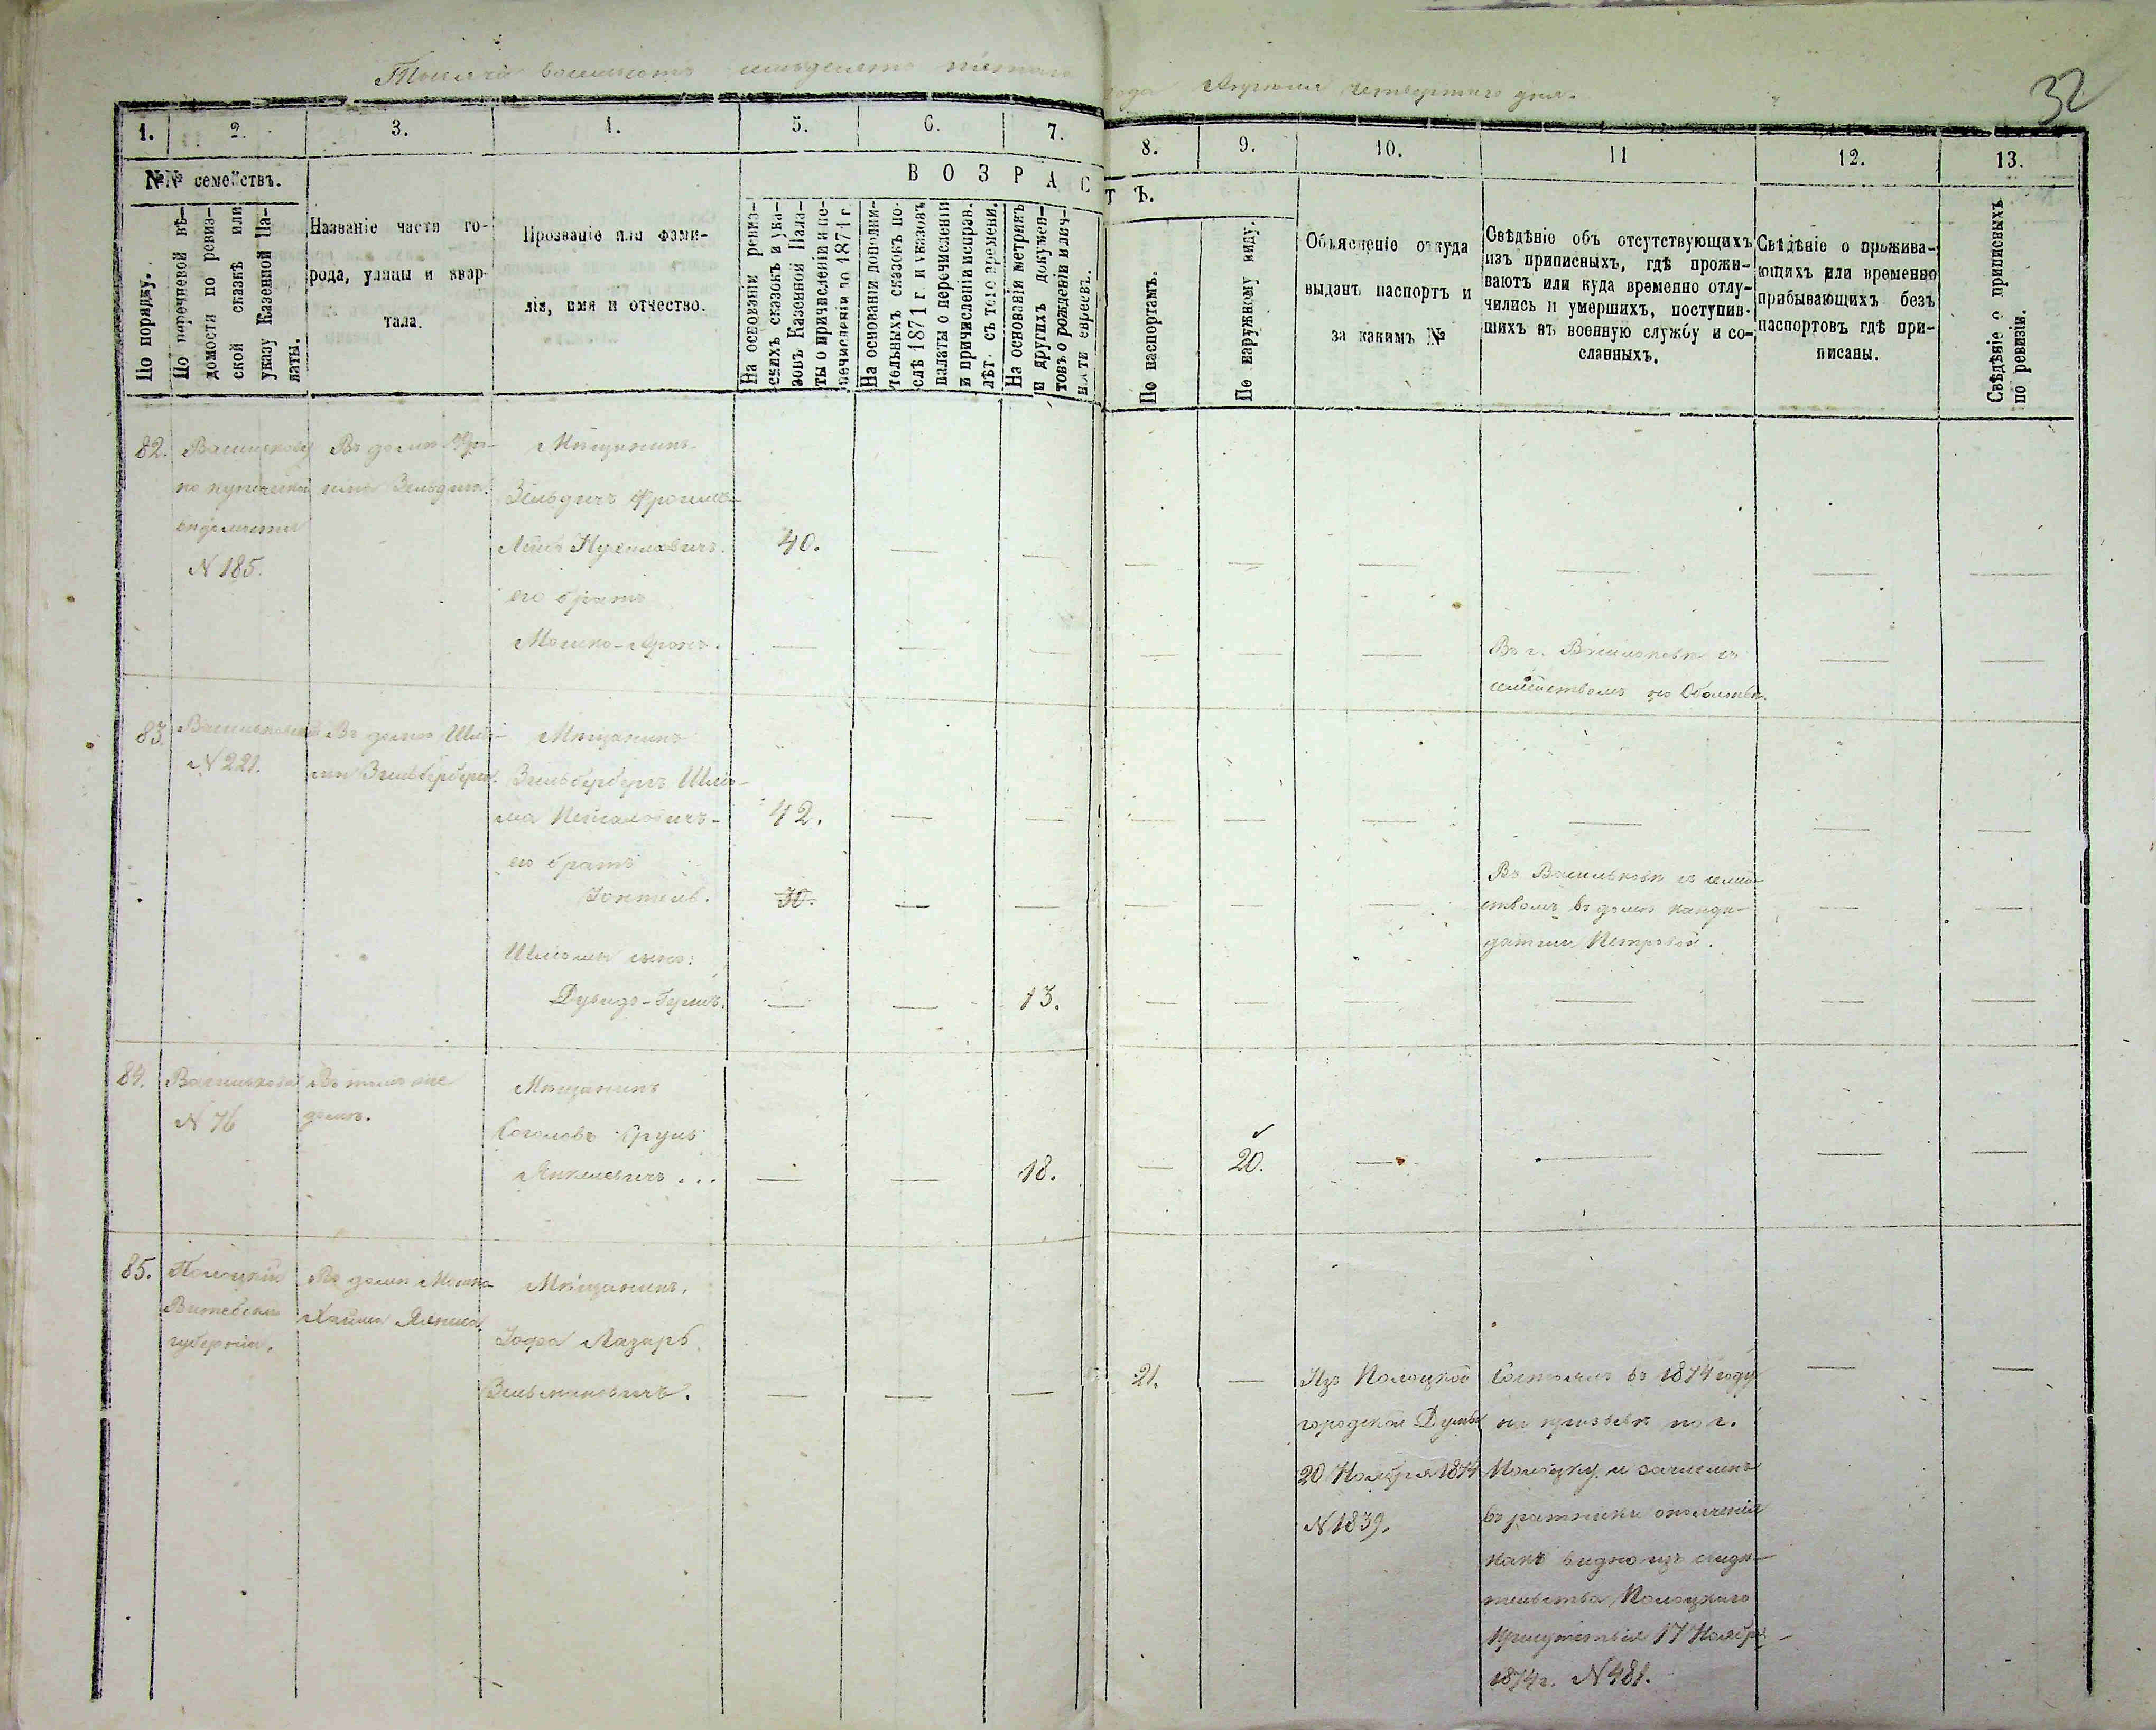 Тысяча восемьсотъ семьдесятъ пятаго года Апрѣля четвертаго дня.
32
1. 2. 3. 4. 5. 6. 7. 8. 9. 10. 11 12. 13.
№№ семействъ.
По порядку.
По перечневой вѣ-
домости по ревиз-
ской сказкѣ или
указу Казенной Па-
латы.
Названіе части го-
рода, улицы и квар-
тала.
Прозваніе или фами-
лія, имя и отчество.
ВОЗРАСТЪ.
На основаніи ревиз-
скихъ сказокъ и ука-
зовъ Казенной Пала-
ты о причисленіи и пе-
речисленіи до 1871 г.
На основаніи дополни-
тельныхъ сказокъ по-
слѣ 1871 г. и указовъ
палаты о перечисленіи
и причисленіи исправ.
лѣт. съ того времени.
На основаніи метрикъ
и другихъ докумен-
товъ о рожденіи и лич-
ности евреевъ.
По паспортамъ.
По наружному виду.
Объясненіе откуда
выданъ паспортъ и
за какимъ №
Свѣдѣніе объ отсутствующихъ
изъ приписныхъ, гдѣ прожи-
ваютъ или куда временно отлу-
чились и умершихъ, поступив-
шихъ въ военную службу и со-
сланныхъ.
Свѣдѣніе о прожива-
ющихъ или временно
прибывающихъ безъ
паспортовъ гдѣ при-
писаны.
Свѣдѣніе о приписныхъ
по ревизіи.
82.
по купеческой
N 185.
Въ домѣ Фро-
има Зельдича.
Мѣщанинъ
Зельдичъ Фроимъ-
Лейба Нухимовичъ. 40.
его братъ
Мошко-Аронъ.
Въ г. Васильковѣ съ
семействомъ
83.
N 221.
Въ домѣ Шлё-
мы Зильберберга.
Мѣщанинъ
Зильбербергъ Шлё-
ма 42.
его братъ
30.
Въ Васильковѣ съ семей-
ствомъ въ домѣ канди-
датши Петровой.
Шлёмы сынъ:
Дувидъ- 13.
84. Васильковѣ
N 76
Въ томъ же
домѣ.
Мѣщанинъ
Соколовъ
Янкелевичъ... 18. 20.
85. Полоцкій
Витебской
губерніи.
Въ домѣ Мошка-
Хаима
Мѣщанинъ.
Іофа Лазарь
Зельмановичъ. 21.
Изъ Полоцкой
городской Думы
20 Ноября 1874
N 1839.
Состоялъ въ 1874 году
на призывѣ по г.
Полоцку и зачисленъ
въ ратники ополченія
какъ видно изъ свидѣ-
тельства Полоцкаго
Присутствія 17 Ноября
1874 г. N 481.